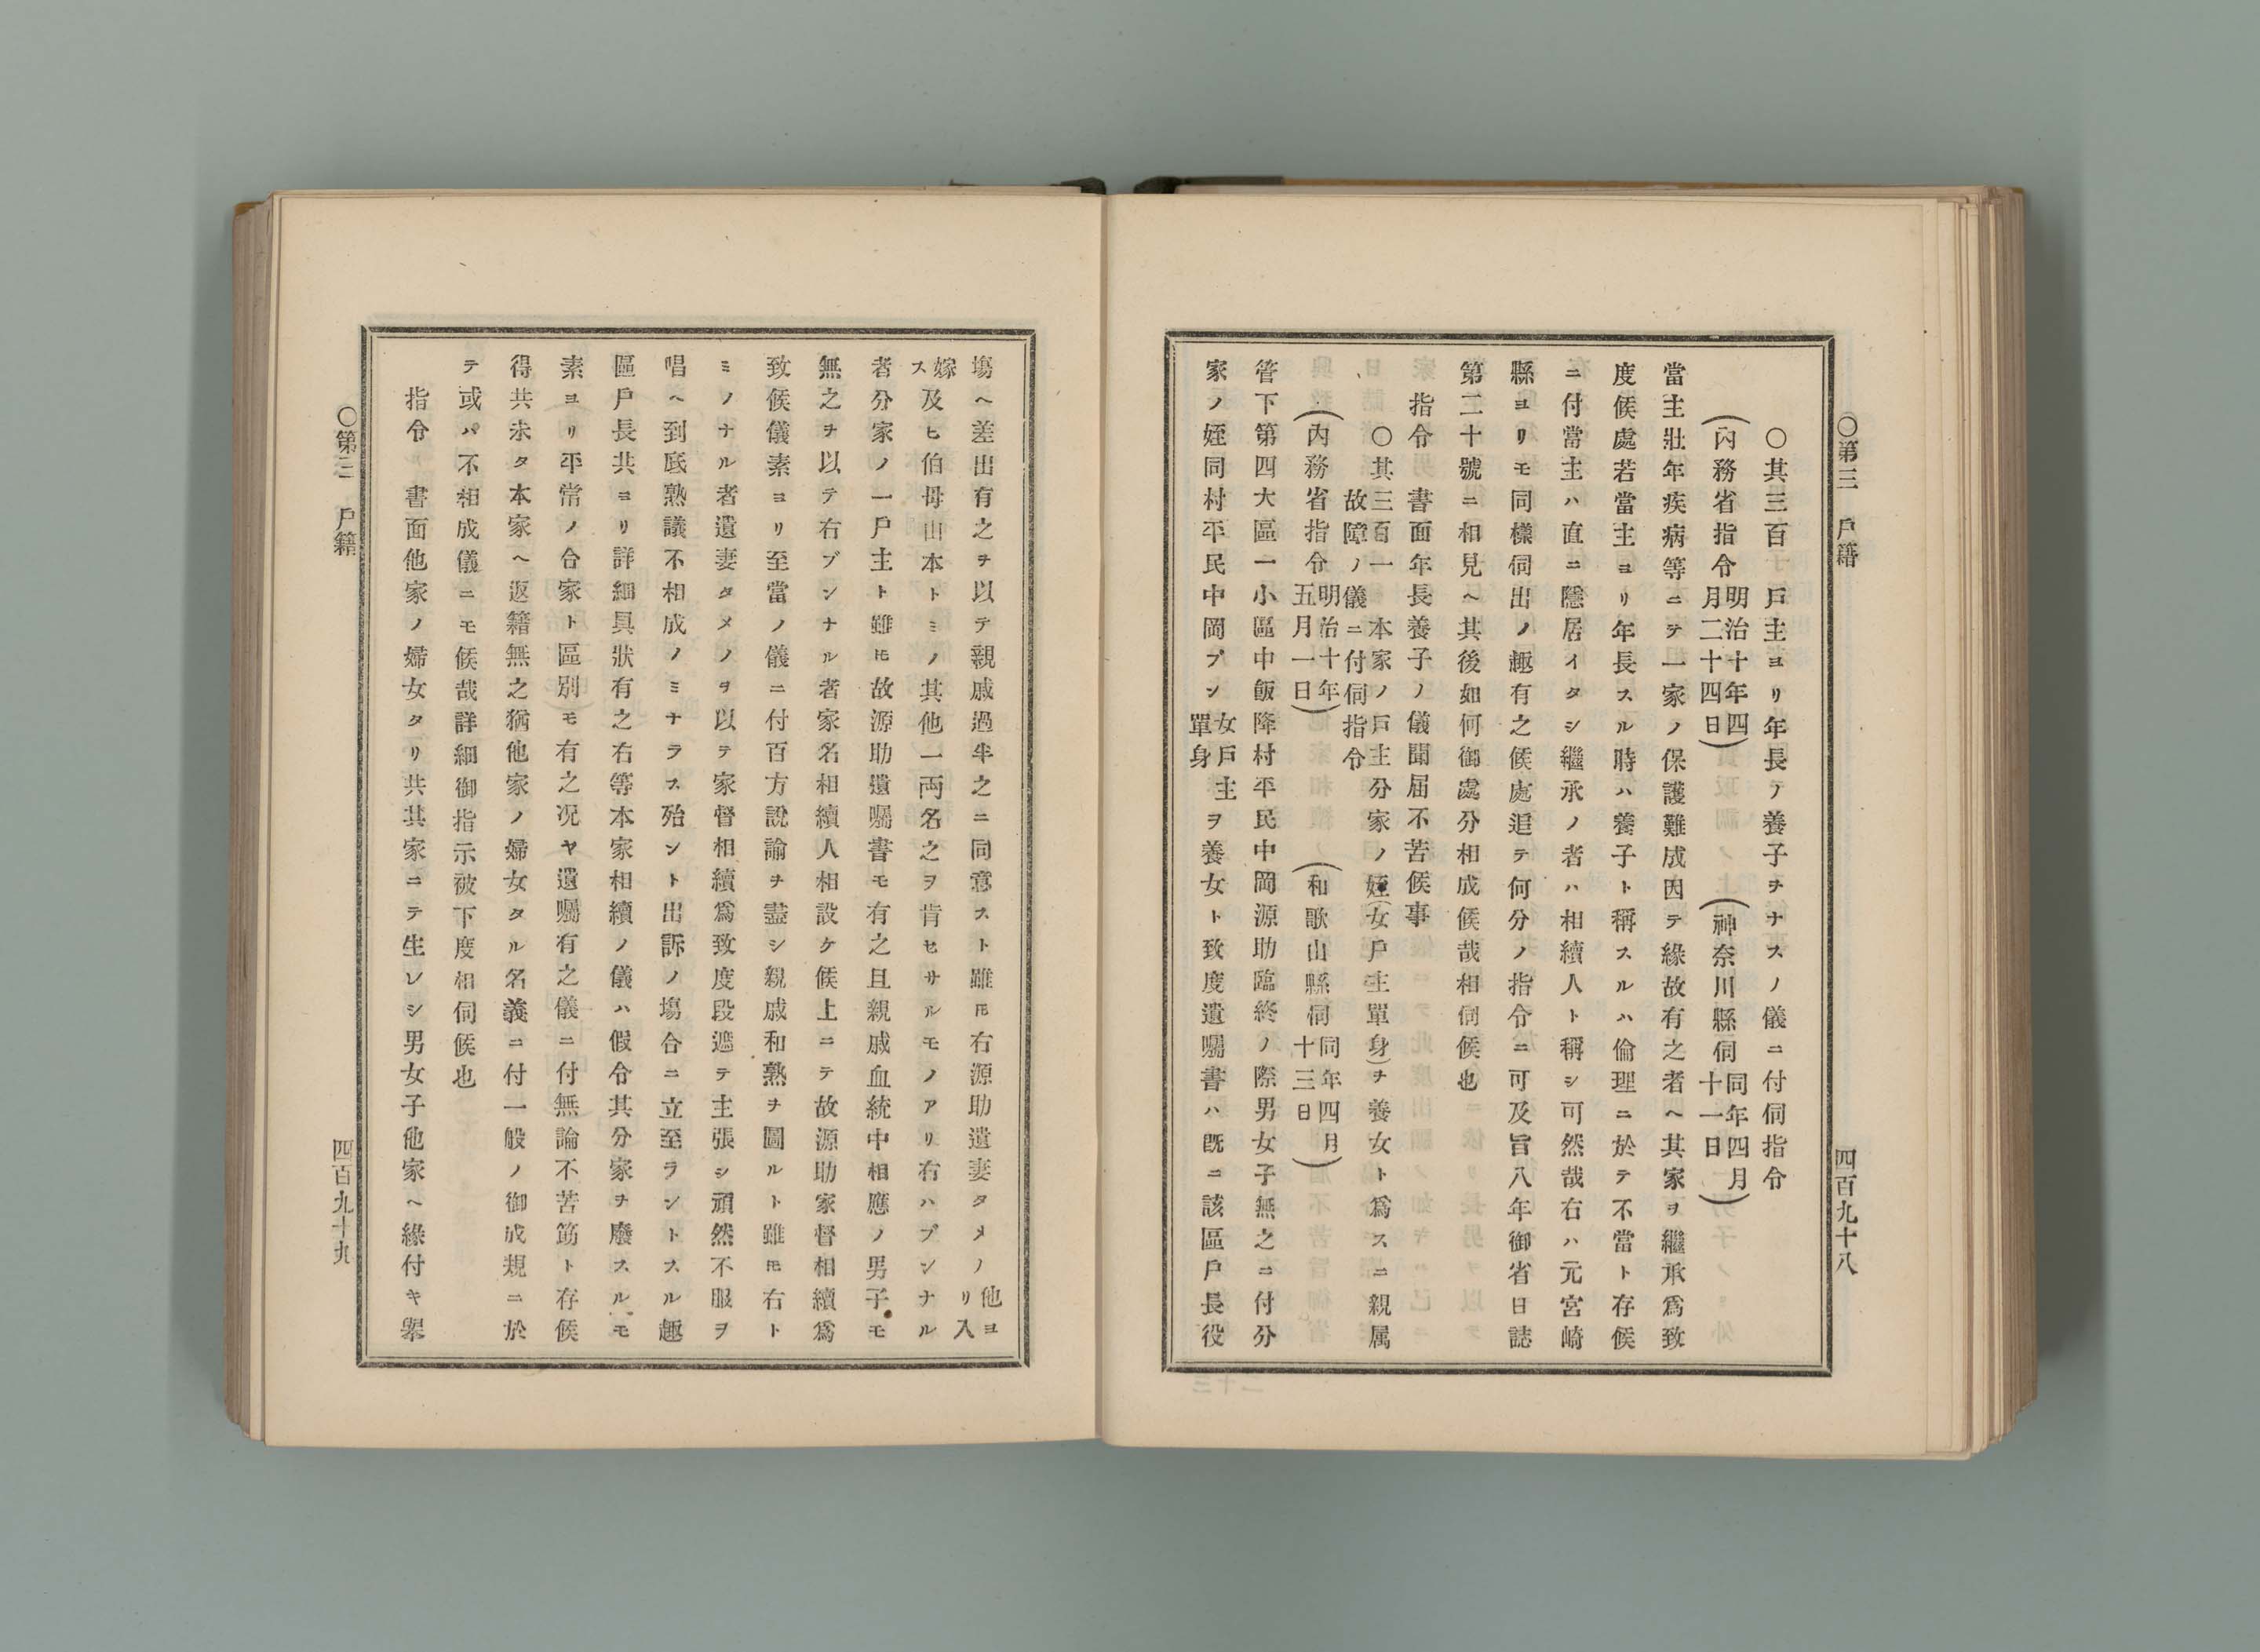 ○第三　戸籍
四百九十八
○其三百　戸主ヨリ年長ヲ養子ヲナスノ儀ニ付伺指令
（内務省指令明治十年四月二十四日）（神奈川縣伺同年四月十一日）
當主壯年疾病等ニテ一家ノ保護難成因テ緣故有之者ヘ其家ヲ繼承爲致
度候處若當主ヨリ年長スル時ハ養子ト稱スルハ倫理ニ於テ不當ト存候
ニ付當主ハ直ニ隱居イタシ繼承ノ者ハ相續人ト稱シ可然哉右ハ元宮崎
縣ヨリモ同樣伺出ノ趣有之候處追テ何分ノ指令ニ可及旨八年御省日誌
第二十號ニ相見ヘ其後如何御處分相成候哉相伺候也
指令　書面年長養子ノ儀聞届不苦候事
○其三百一　本家ノ戸主分家ノ姪（女戸主單身）ヲ養女ト爲スニ親属
故障ノ儀ニ付伺指令
（内務省指令明治十年五月一日）（和歌山縣伺同年四月十三日）
管下第四大區一小區中飯降村平民中岡源助臨終ノ際男女子無之ニ付分
家ノ姪同村平民中岡ブン女戸主單身ヲ養女ト致度遺囑書ハ既ニ該區戸長役
塲ヘ差出有之ヲ以テ親戚過半之ニ同意スト雖𪜈右源助遺妻タメノ他ヨリ入
嫁ス及ヒ伯母山本トミノ其他一両名之ヲ肯セサルモノアリ右ハブンナル
者分家ノ一戸主ト雖𪜈故源助遺囑書モ有之且親戚血統中相應ノ男子モ
無之ヲ以テ右ブンナル者家名相續人相設ケ候上ニテ故源助家督相續爲
致候儀素ヨリ至當ノ儀ニ付百方說諭ヲ盡シ親戚和熟ヲ圖ルト雖𪜈右ト
ミノナル者遺妻タメノヲ以テ家督相續爲致度段遮テ主張シ頑然不服ヲ
唱ヘ到底熟議不相成ノミナラス殆ント出訴ノ塲合ニ立至ラントスル趣
區戸長共ヨリ詳細具狀有之右等本家相續ノ儀ハ假令其分家ヲ廢スルモ
素ヨリ平常ノ合家ト區別モ有之况ヤ遺囑有之儀ニ付無論不苦筋ト存候
得共未タ本家ヘ返籍無之猶他家ノ婦女タル名義ニ付一般ノ御成規ニ於
テ或ハ不相成儀ニモ候哉詳細御指示被下度相伺候也
指令　書面他家ノ婦女タリ共其家ニテ生レシ男女子他家ヘ緣付キ擧
○第三　戸籍
四百九十九